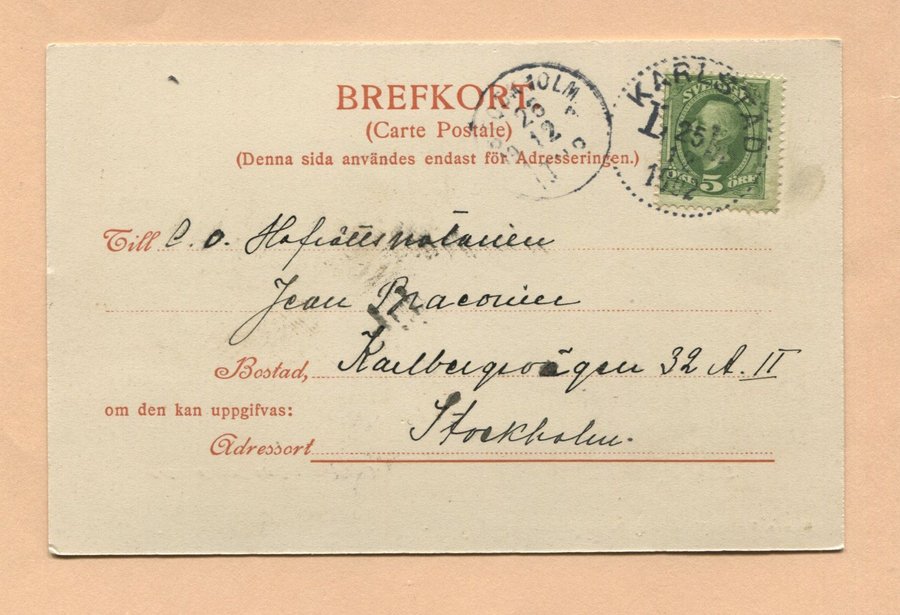 BREFKORT
(Carte Postale)
(Denna sida användes endast för Adresseringen.)
KARLSTAD
L
25
1902
SVERIGE
5 ÖRE
STOCKHOLM
26 12
Till C. O. Hofrättsnotarien
Jean Braconier
Bostad, Karlbergsvägen 32 A. II
om den kan uppgifvas:
Adressort Stockholm.